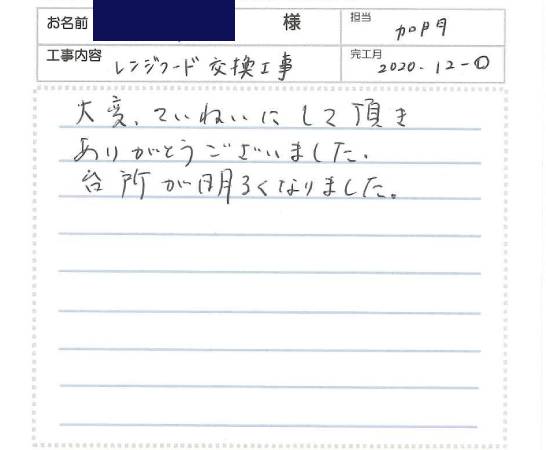 お名前 様 担当 加門
工事内容 レンジフード交換工事 完工月 2020.12-
大変、ていねいにして頂き
ありがとうございました.
台所が明るくなりました。